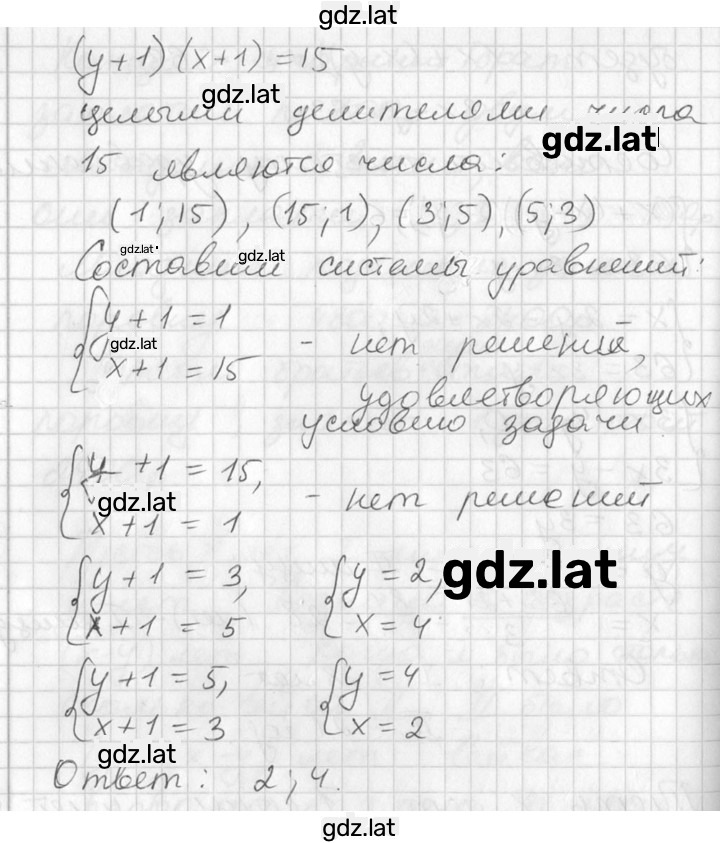 gdz.lat
(y+1)(x+1)=15
gdz.lat
целыми делителями числа
gdz.lat
15 являются числа:
(1;15), (15;1), (3;5), (5;3)
gdz.lat
gdz.lat
Составим системы уравнений:
{ y+1=1
gdz.lat
x+1=15 - нет решений,
удовлетворяющих
условию задачи
{ y+1=15,
gdz.lat
x+1=1 - нет решений
{ y+1=3, { y=2,
gdz.lat
x+1=5 x=4
{ y+1=5, { y=4
x+1=3 x=2
gdz.lat
Ответ: 2;4.
gdz.lat